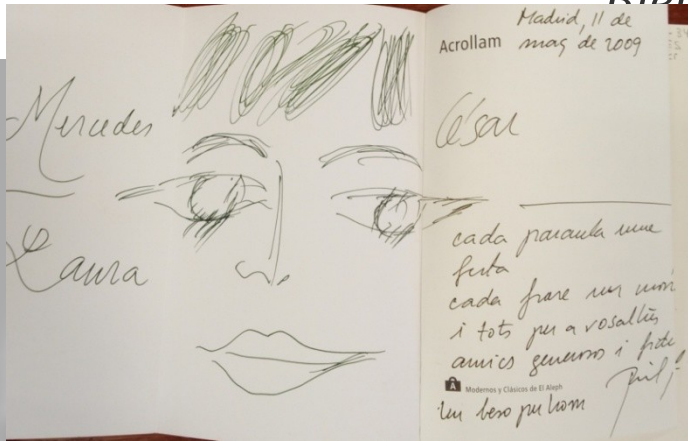 Mercedes
Laura
Acrollam
Madrid, 11 de
maig de 2009
César
cada paraula una
fruta
cada frase un món
i tots per a vosaltres
amics generosos i
Modernos y Clásicos de El Aleph
Un beso per hom